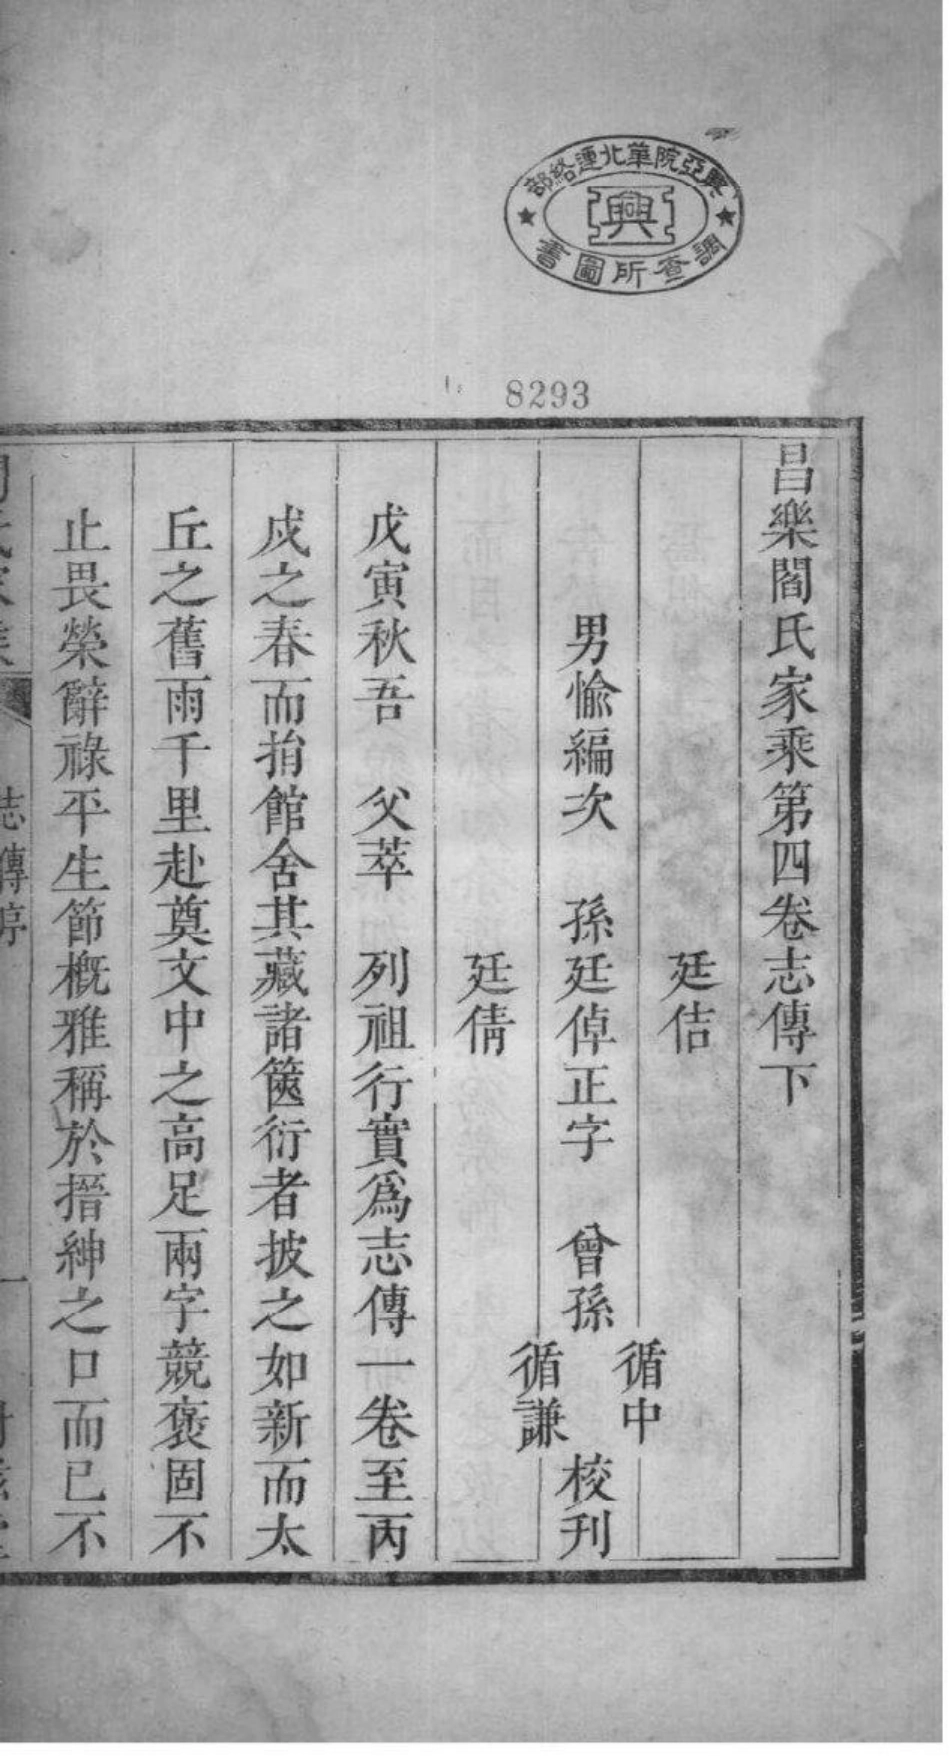 興亞院華北連絡部
興
調查所圖書
8293
昌樂閻氏家乘第四卷志傳下
廷佶
男愉編次　孫廷倬正字　曾孫　循中　循謙　校刊
廷倩
戊寅秋吾　父萃　列祖行實爲志傳一卷至丙
戌之春而捐館舍其藏諸篋衍者披之如新而太
丘之舊雨千里赴奠文中之高足兩字競褒固不
止畏榮辭祿平生節槪雅稱於搢紳之口而已不
志傳
一